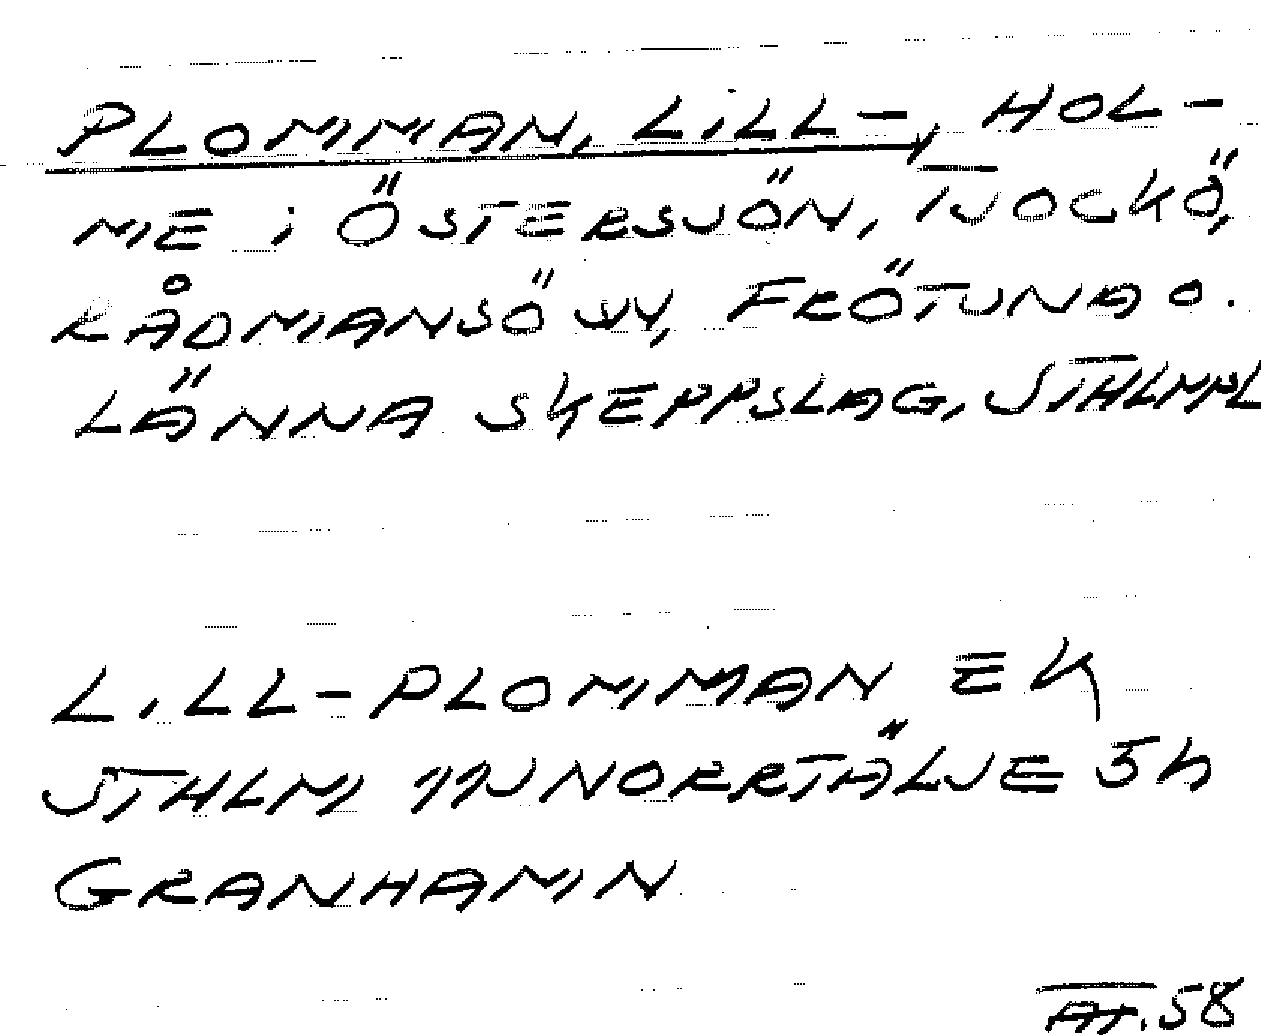 PLOMMAN, LILL-, HOL-
ME i ÖSTERSJÖN, TJOCKÖ,
RÅDMANSÖ SN, FRÖTUNA O.
LÄNNA SKEPPSLAG, STHLMPL
LILL-PLOMMAN EK
STHLM 11J NORRTÄLJE 5h
GRANHAMN
AT. 58